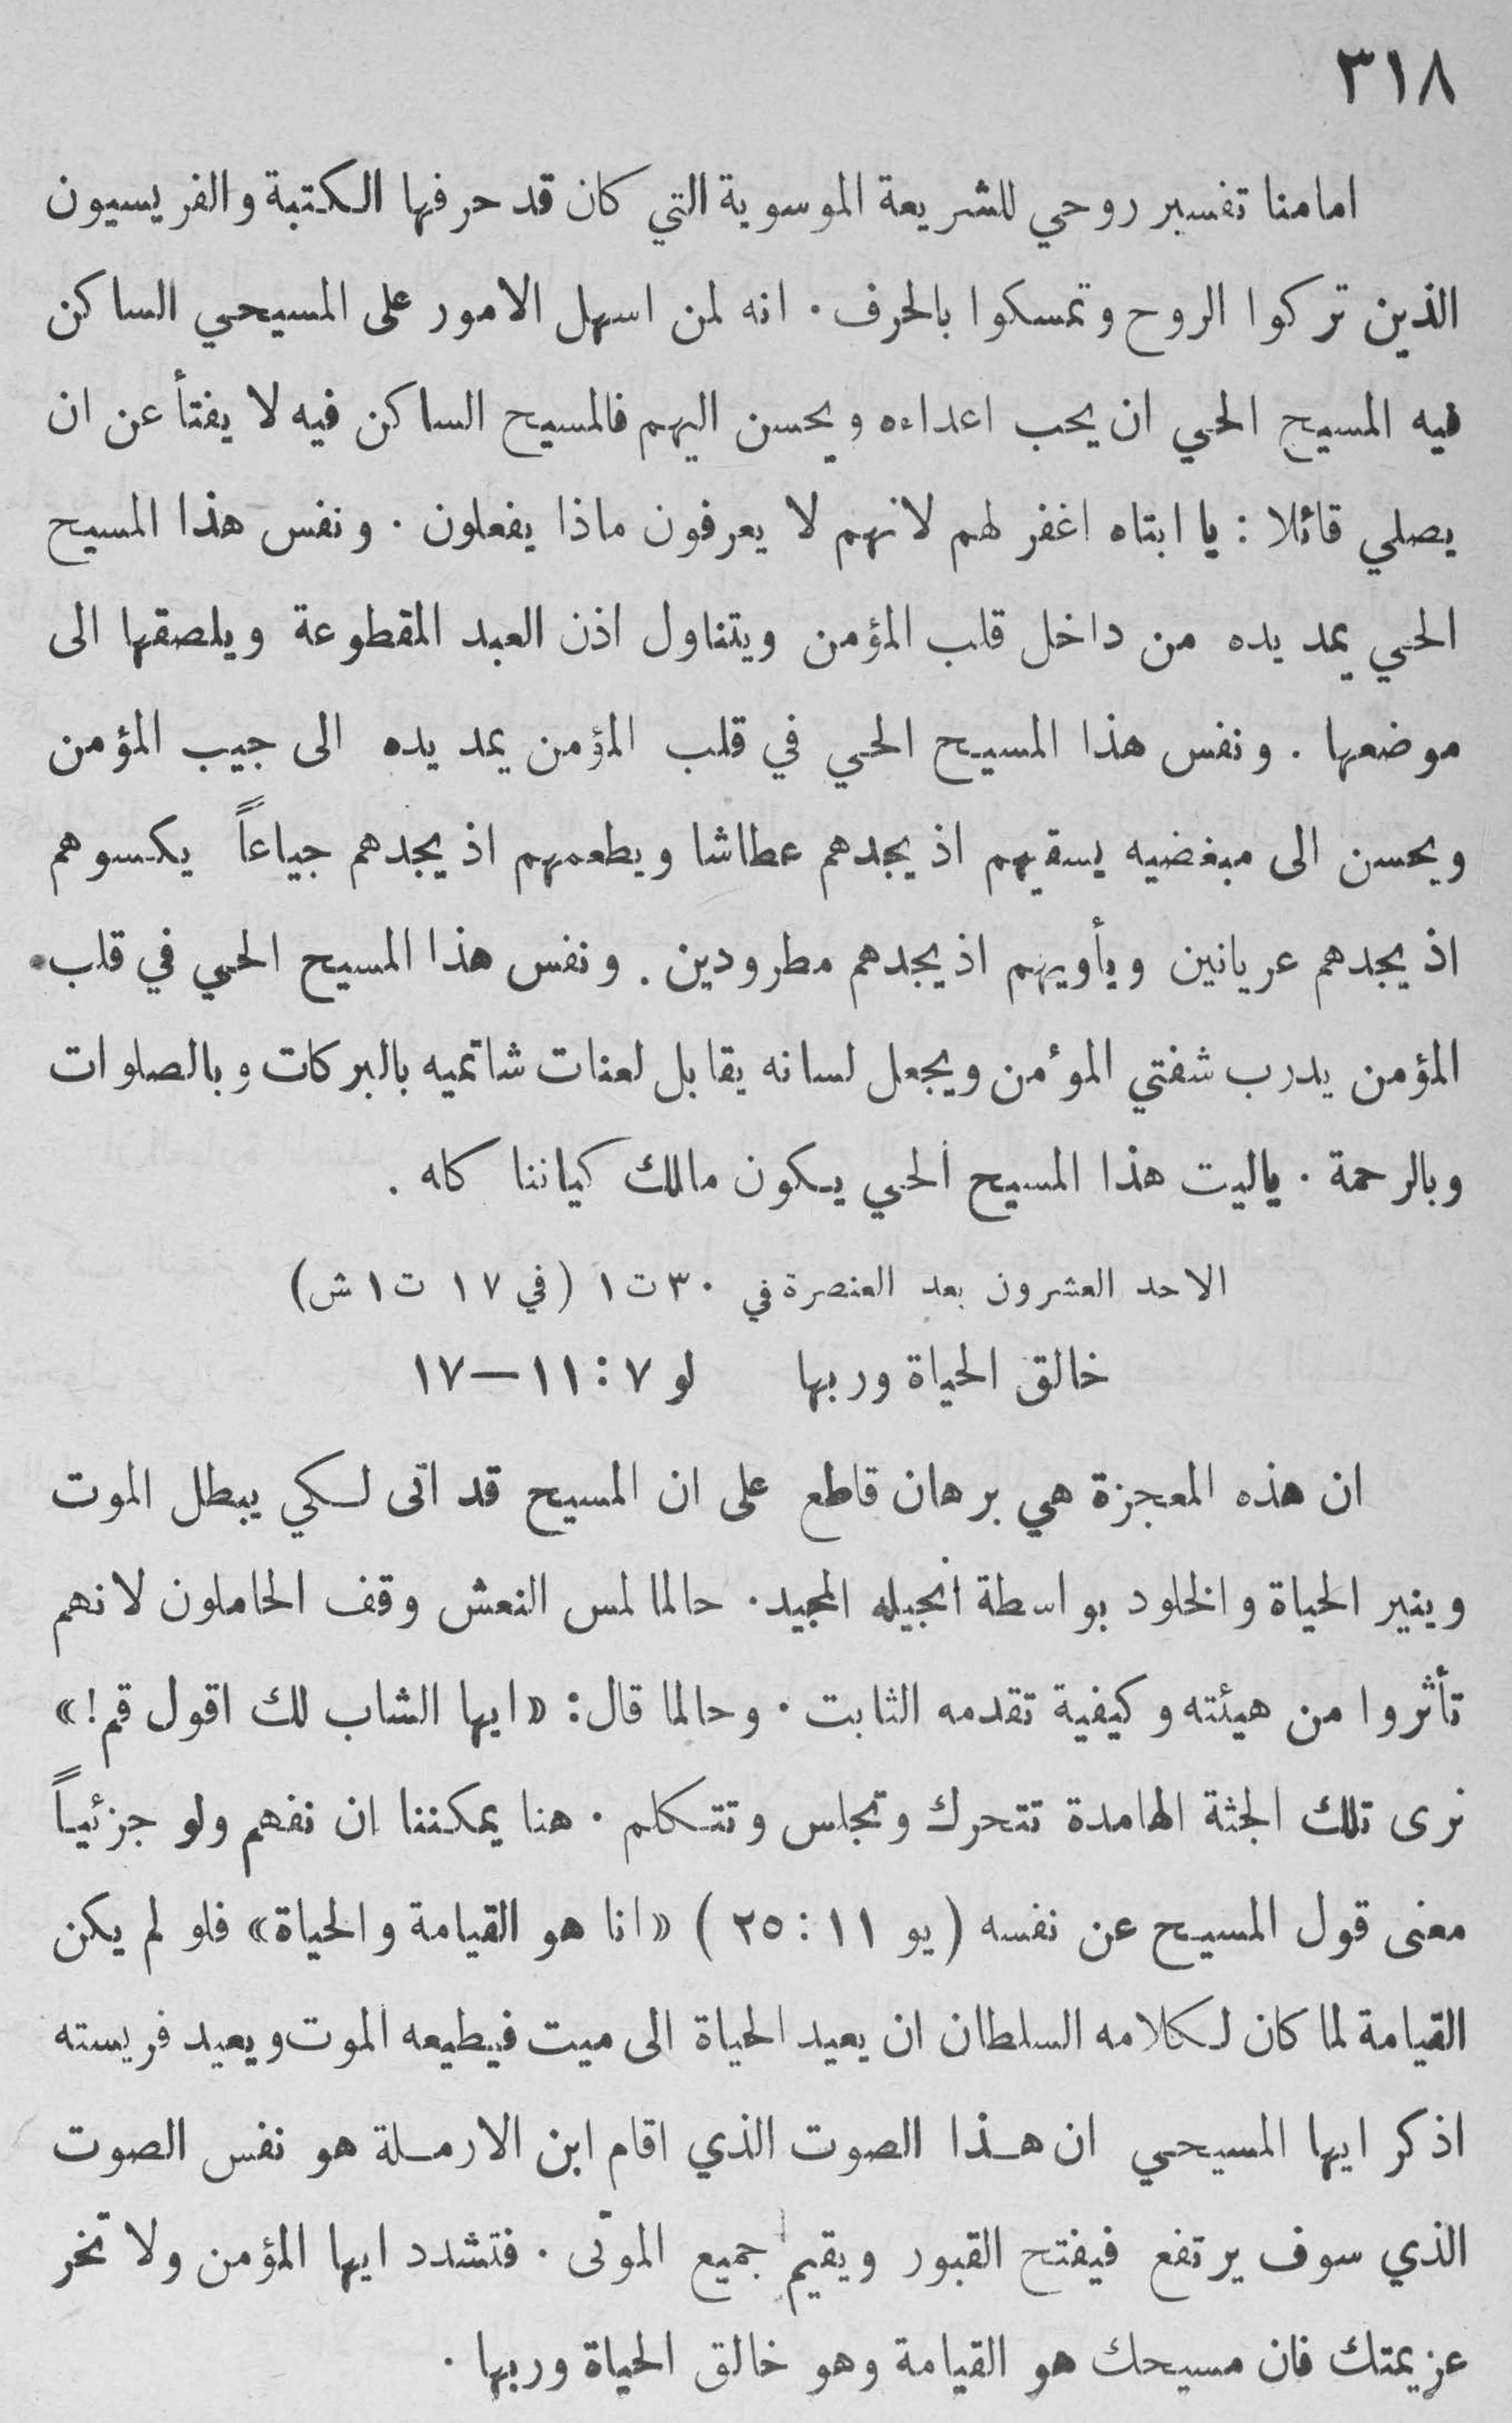 ٣١٨
امامنا تفسير روحي للشريعة الموسوية التي كان قد حرفها الكتبة والفريسيون
الذين تركوا الروح وتمسكوا بالحرف. انه لمن اسهل الامور على المسيحي الساكن
فيه المسيح الحي ان يحب اعداءه ويحسن اليهم فالمسيح الساكن فيه لا يفتأ عن ان
يصلي قائلا : يا ابتاه اغفر لهم لانهم لا يعرفون ماذا يفعلون . ونفس هذا المسيح
الحي يمد يده من داخل قلب المؤمن ويتناول اذن العبد المقطوعة ويلصقها الى
موضعها . ونفس هذا المسيح الحي في قلب المؤمن يمد يده الى جيب المؤمن
ويحسن الى مبغضيه يسقيهم اذ يجدهم عطاشا ويطعمهم اذ يجدهم جياعاً يكسوهم
اذ يجدهم عريانين ويأويهم اذ يجدهم مطرودين . ونفس هذا المسيح الحي في قلب
المؤمن يدرب شفتي المؤمن ويجعل لسانه يقابل لعنات شاتميه بالبركات وبالصلوات
وبالرحمة . ياليت هذا المسيح الحي يكون مالك كياننا كله .
الاحد العشرون بعد العنصرة في ٣٠ ت ١ (في ١٧ ت ١ ش)
خالق الحياة وربها لو ٧ : ١١–١٧
ان هذه المعجزة هي برهان قاطع على ان المسيح قد اتى لكي يبطل الموت
وينير الحياة والخلود بواسطة انجيله المجيد. حالما لمس النعش وقف الحاملون لانهم
تأثروا من هيئته وكيفية تقدمه الثابت . وحالما قال: «ايها الشاب لك اقول قم!»
نرى تلك الجثة الهامدة تتحرك وتجلس وتتكلم . هنا يمكننا ان نفهم ولو جزئياً
معنى قول المسيح عن نفسه (يو ١١ : ٢٥) «انا هو القيامة والحياة» فلو لم يكن
القيامة لما كان لكلامه السلطان ان يعيد الحياة الى ميت فيطيعه الموت ويعيد فريسته
اذكر ايها المسيحي ان هذا الصوت الذي اقام ابن الارملة هو نفس الصوت
الذي سوف يرتفع فيفتح القبور ويقيم جميع الموتى . فتشدد ايها المؤمن ولا تخر
عزيمتك فان مسيحك هو القيامة وهو خالق الحياة وربها .